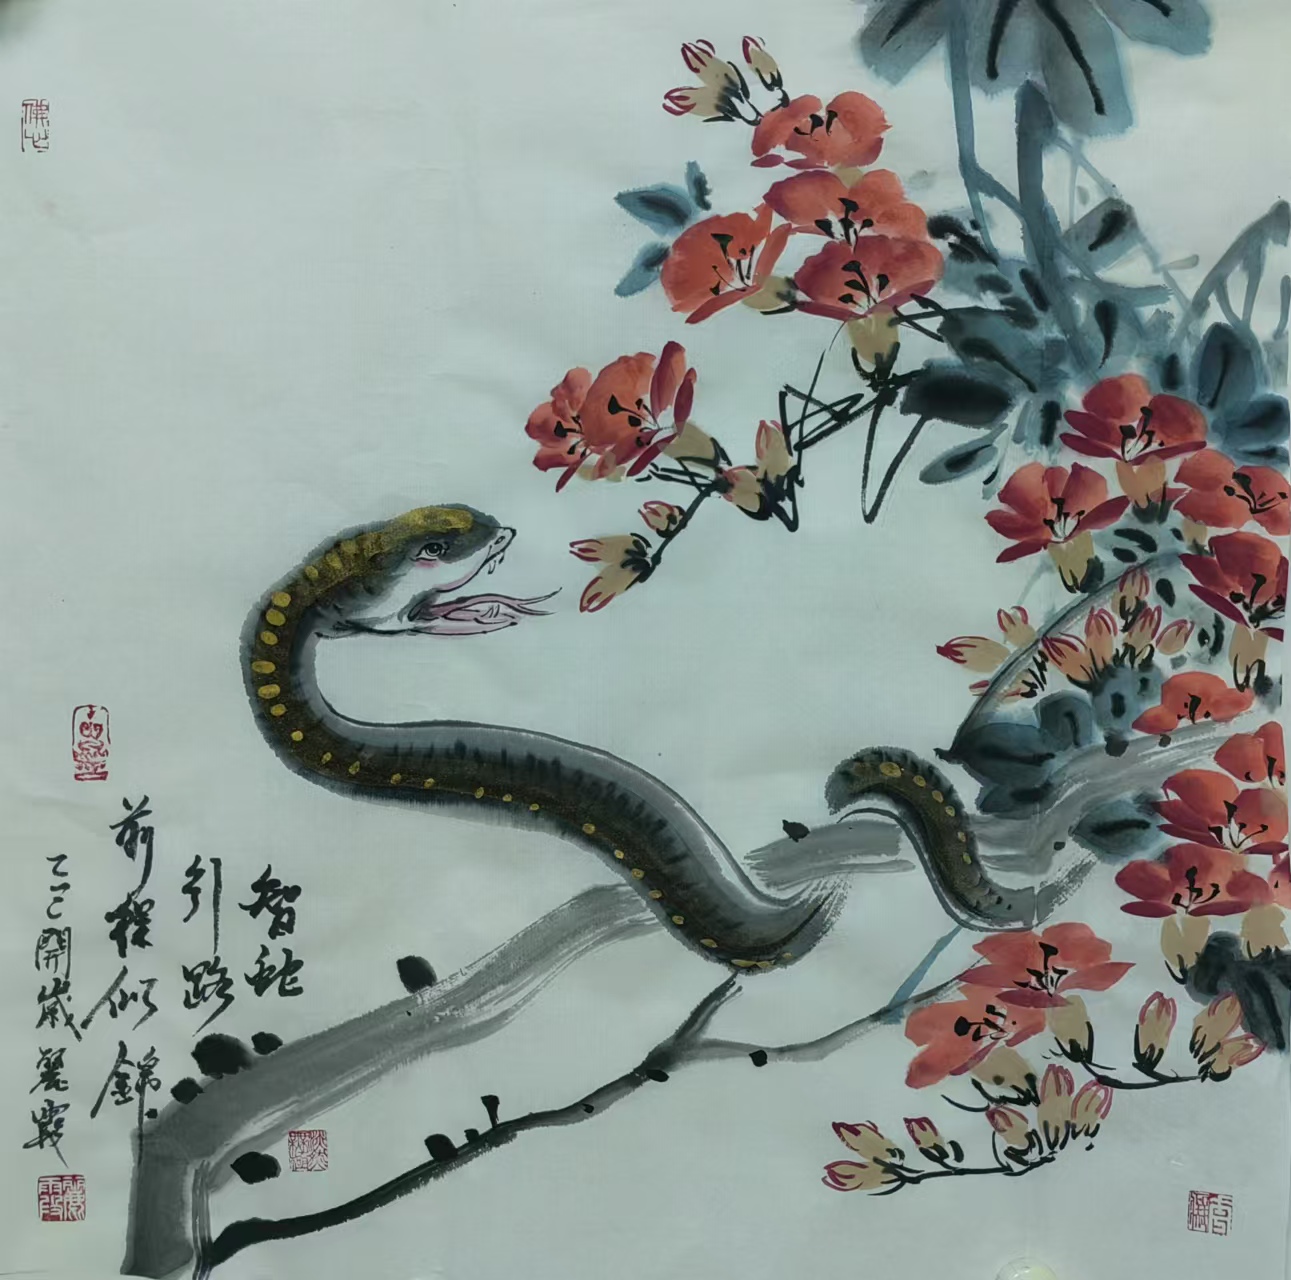 智蛇
引路
前程似錦
乙巳開歲麗霞
佛心